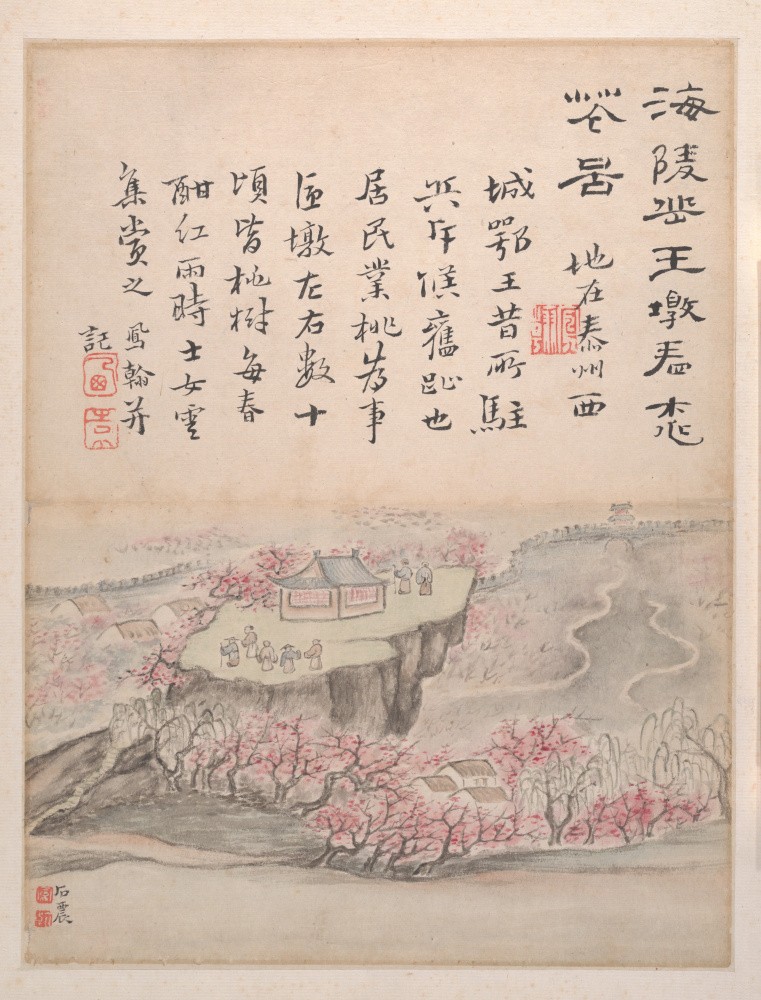 海陵岳王墩看桃
花啚 地在泰州西
城鄂王昔所駐
兵斥候舊趾也
居民業桃為事
匝墩左右數十
頃皆桃樹每春
酣紅雨時士女雲
集賞之 鳳翰并
記
石震